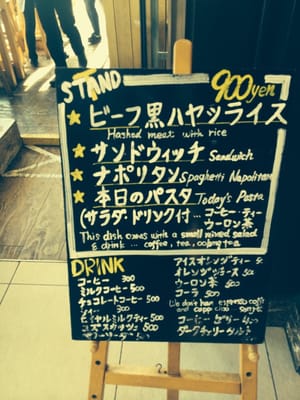 STAND 900yen
★ビーフ黒ハヤシライス
Hashed meat with rice
★サンドウィッチ Sandwich
★ナポリタン Spaghetti Napolitan
★本日のパスタ Today's Pasta
(サラダ・ドリンク付… コーヒー ティー
ウーロン茶
This dish comes with a small mixed salad
& drink… coffee, tea, oolong tea
DRINK
コーヒー 300
ミルクコーヒー 500
チョコレートコーヒー 500
ティー 300
ロイヤルミルクティー 500
アイスオレンジティー
オレンジジュース 500
ウーロン茶 500
コーラ 500
We don't have espresso coffee
and cappuccino